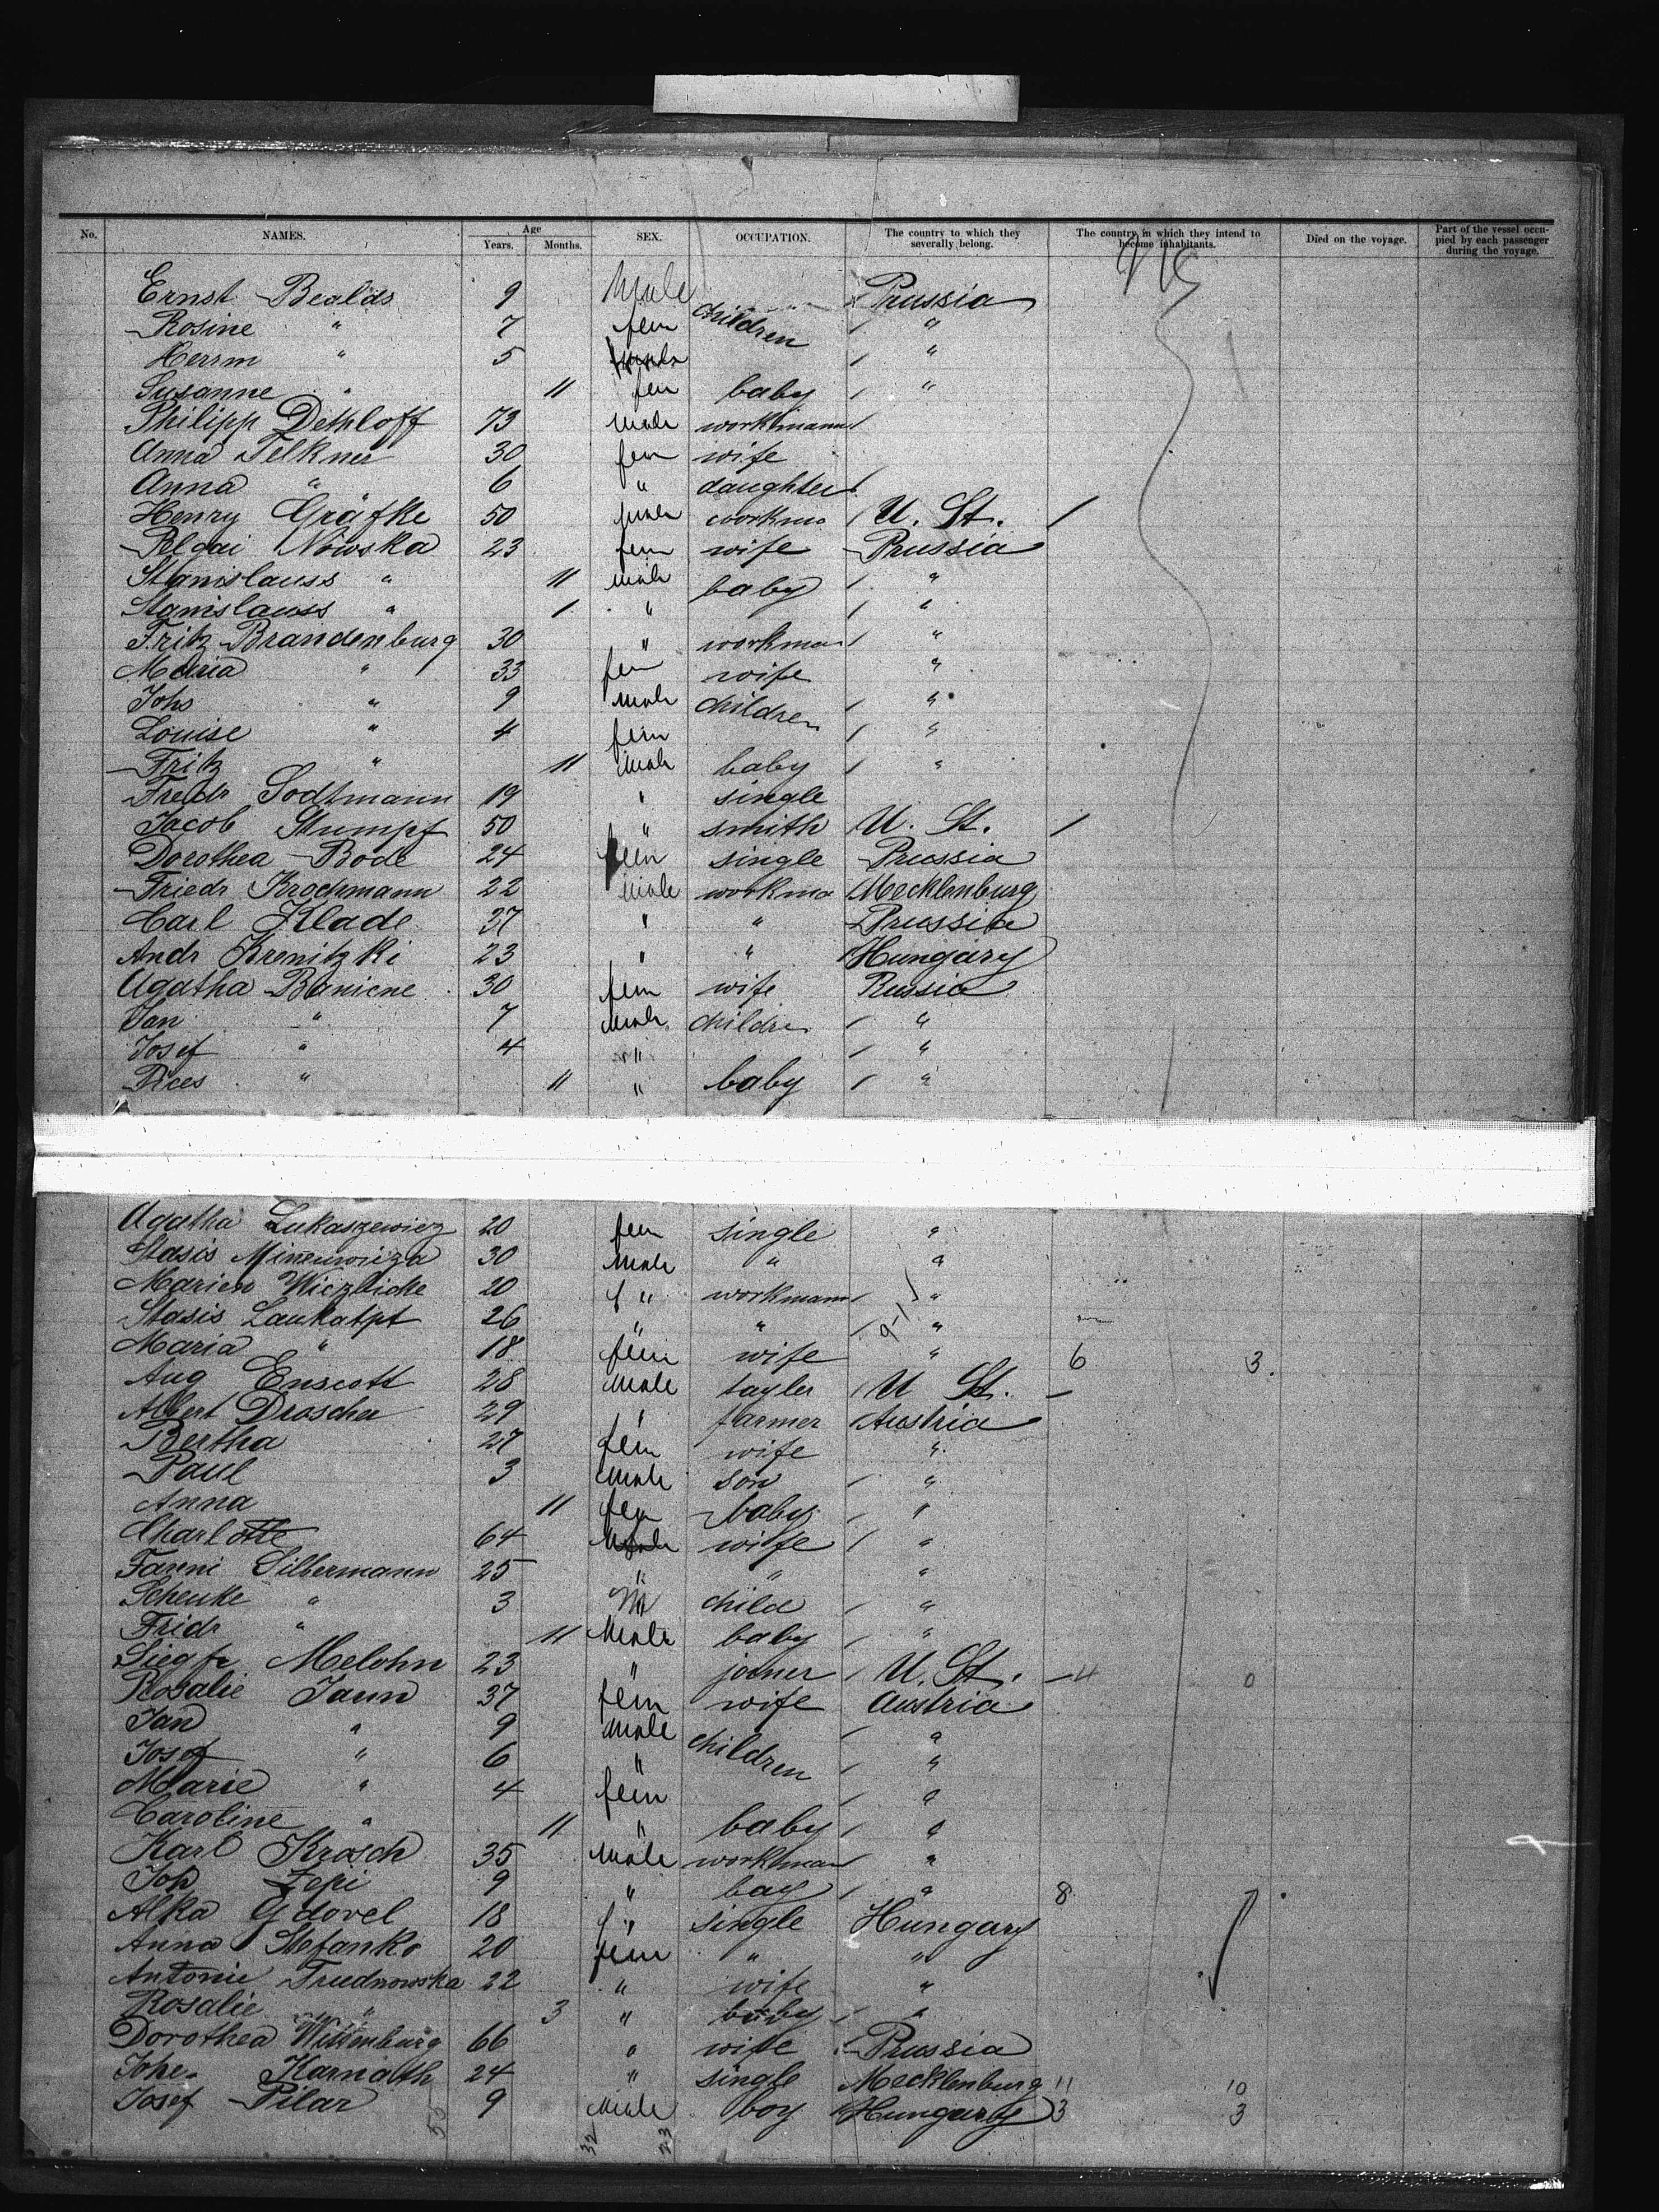 No. NAMES. Age Years. Months. SEX. OCCUPATION. The country to which they severally belong. The country in which they intend to become inhabitants. Died on the voyage. Part of the vessel occupied by each passenger during the voyage.
Ernst Bealds 9 Male children Prussia
Rosine " 7 fem "
Herrm " 5 "
Susanne " 11 fem baby "
Philipp Dethloff 73 Male workmann
Anna Felkner 30 fem wife
Anna " 6 " daughter
Henry Gräfke 50 Male workma U. St.
Pelgai Nowska 23 fem wife Prussia
Stanislauss " 11 Male baby "
Stanislauss " 1 " "
Fritz Brandenburg 30 " workman "
Maria " 33 fem wife "
Johs " 9 Male children "
Louise " 4 fem "
Fritz " 11 Male baby "
Friedr Sodtmann 19 " single
Jacob Stumpf 50 " smith U. St.
Dorothea Bode 24 fem single Prussia
Friedr Krochmann 22 Male workma Mecklenburg
Carl Klade 27 " " Prussia
Andr Krenitzki 23 " " Hungary
Agatha Baniene 30 fem wife Russia
Jan " 7 Male childre "
Josef " 4 " "
Pices " 11 " baby "
Agatha Lukaszewicz 20 fem single "
Stasis 30 Male " "
Marien Wiczlicke 20 f " workmann "
Stasis Laukatpt 26 " " "
Maria " 18 fem wife " 6 3.
Aug Enscott 28 Male tayler U St.
Albert Droscher 29 " farmer Austria
Bertha 27 fem wife "
Paul 3 Male son "
Anna 11 fem baby "
Charlotte 64 wife "
Fanni Silbermann 25 " " "
Scheuke " 3 child "
Fridr " 11 Male baby "
Siegfr Melohn 23 " joiner U. St. 4 0
Rosalie Jaun 37 fem wife Austria
Jan " 9 Male children "
Josef " 6 " "
Marie " 4 fem "
Caroline " 11 " baby "
Karl Krosch 35 Male workman "
Joh Zepi 9 " bay " 8
Alka Gdovel 18 f " single Hungary
Anna Stefanko 20 fem " "
Antonie Trudnowska 22 " wife "
Rosalie " 3 " baby "
Dorothea Wittenburg 66 " wife Prussia
Johe. Karnath 24 " single Mecklenburg 11 10
Josef Pilar 9 Male boy Hungary 3 3
55 32 23